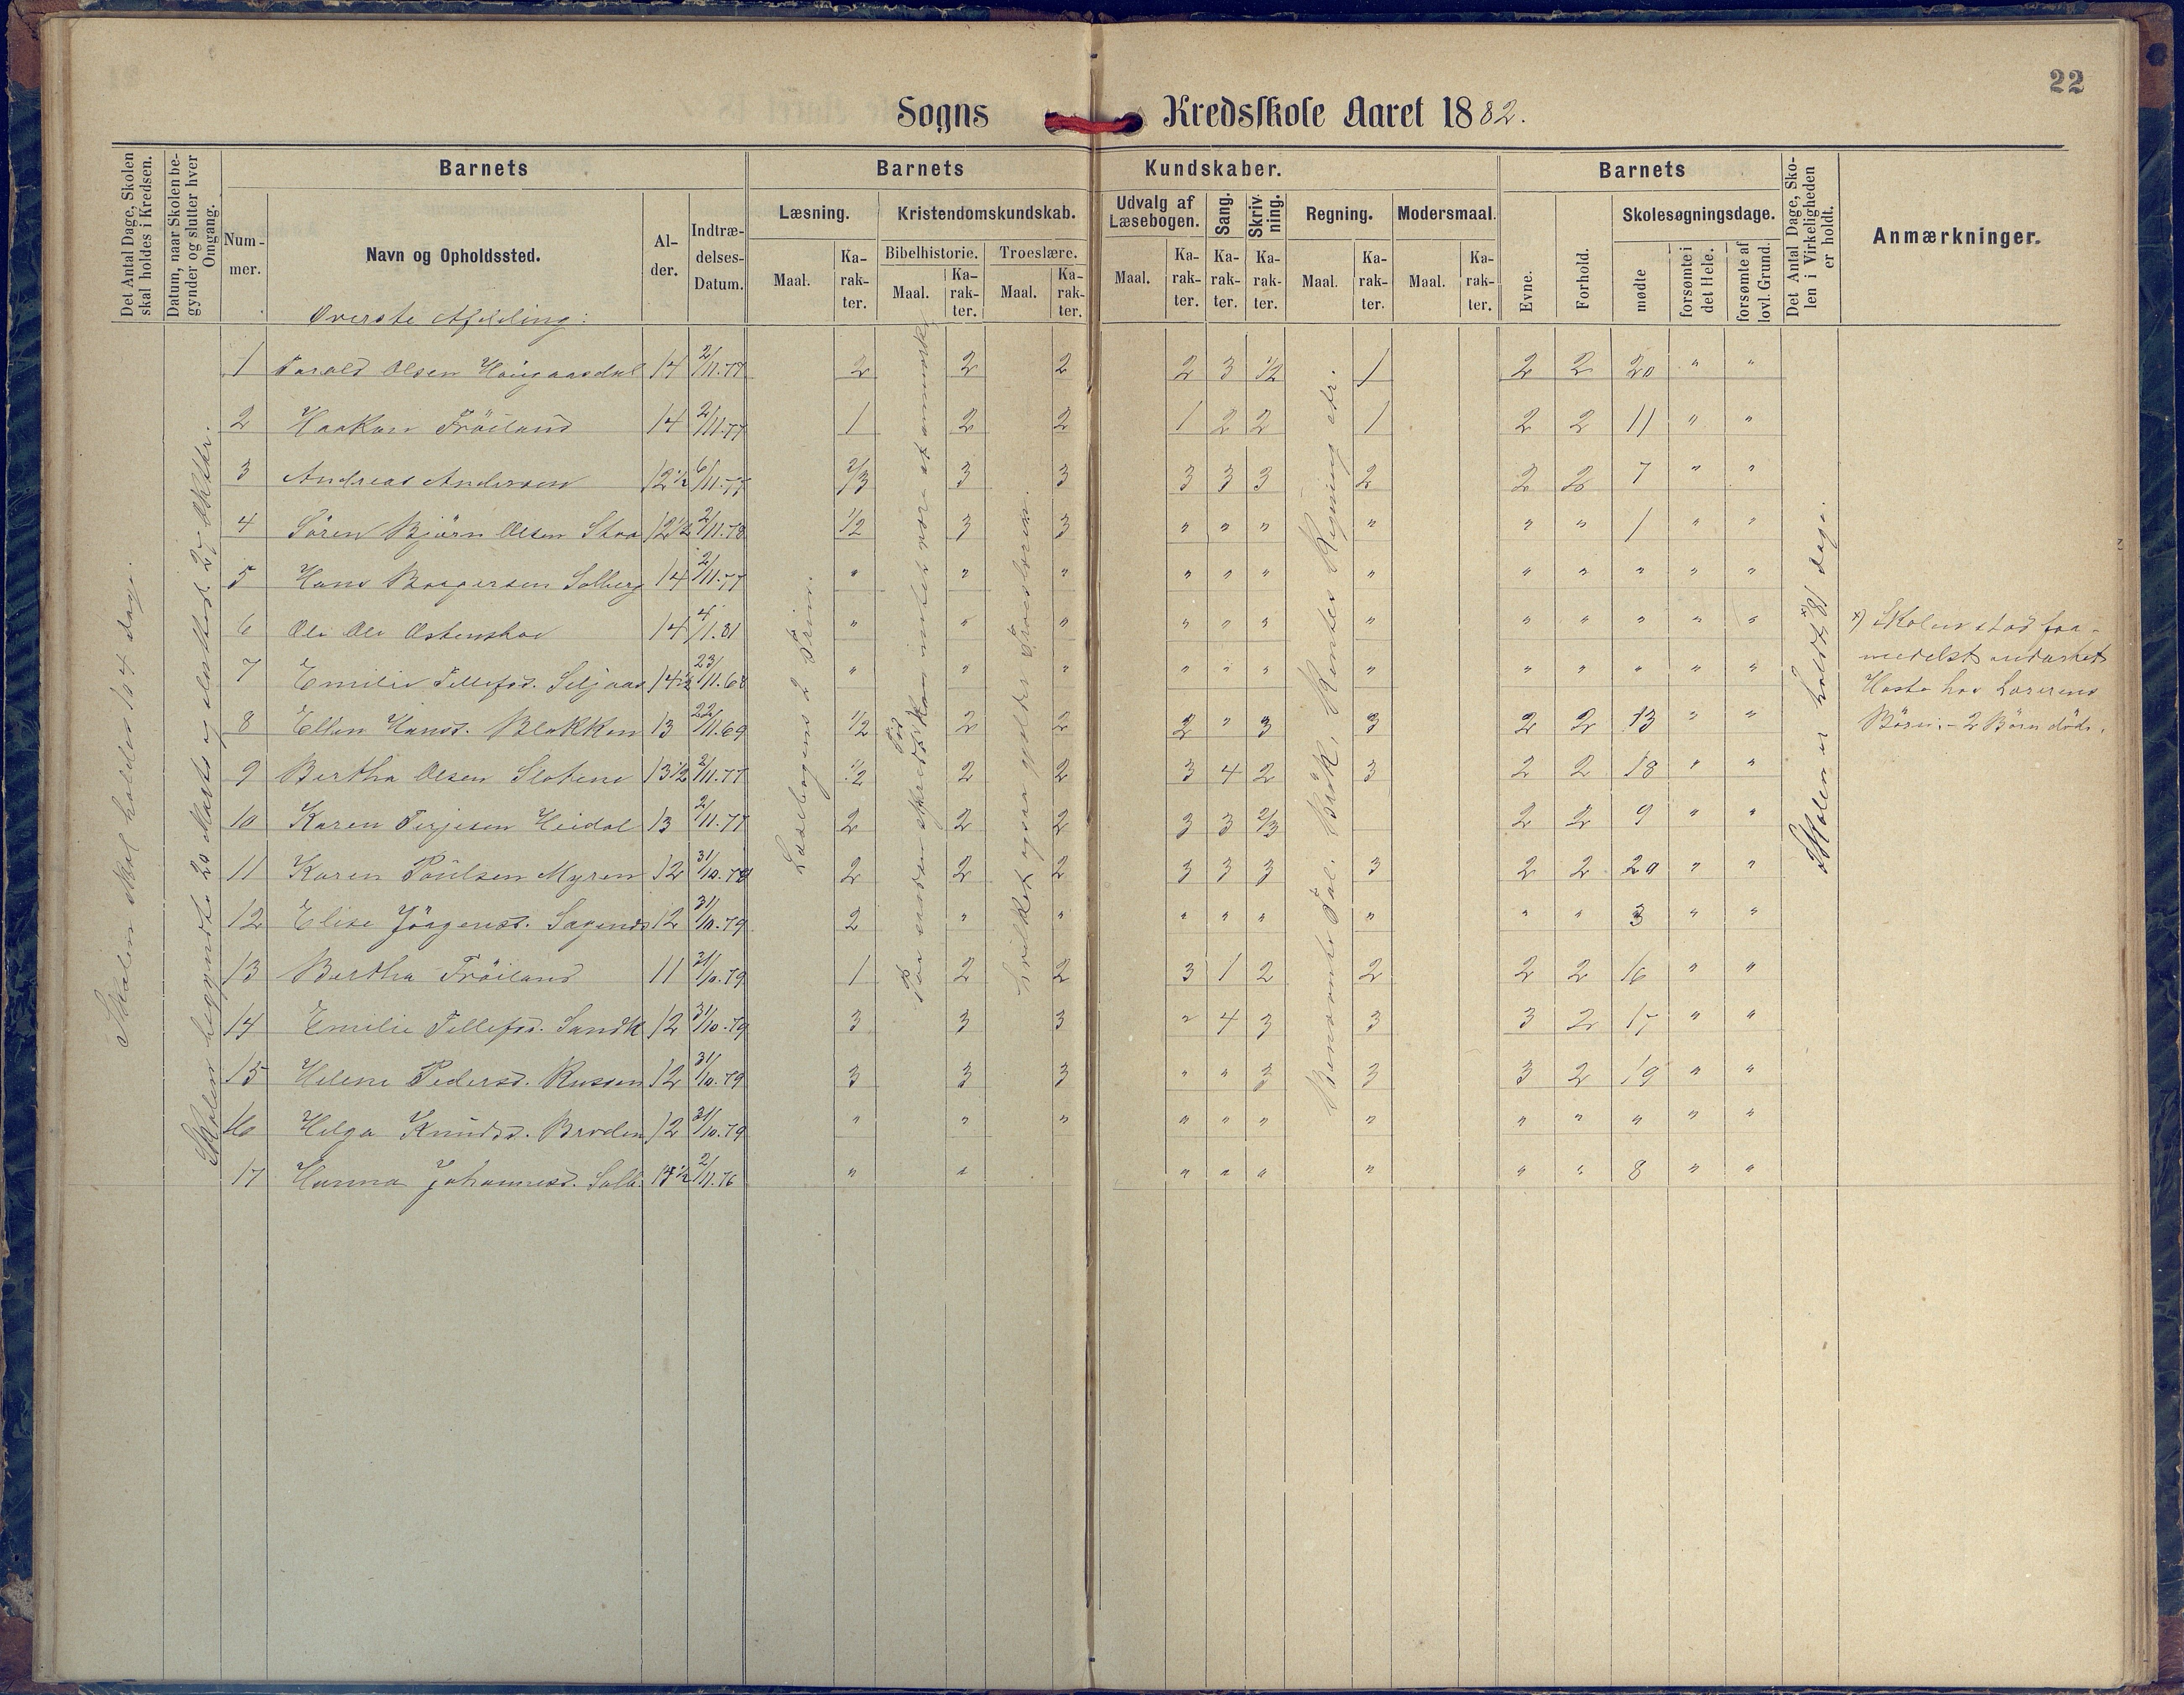 22
Sogns Kredsskole Aaret 1882.
Det Antal Dage, Skolen skal holdes i Kredsen.
Datum, naar Skolen begynder og slutter hver Omgang.
Barnets
Barnets Kundskaber.
Barnets
Det Antal Dage, Skolen i Virkeligheden er holdt.
Anmærkninger.
Nummer.
Navn og Opholdssted.
Alder.
Indtrædelses-Datum.
Læsning.
Kristendomskundskab.
Udvalg af Læsebogen.
Sang.
Skrivning.
Regning.
Modersmaal.
Evne.
Forhold.
Skolesøgningsdage.
Bibelhistorie.
Troeslære.
Maal. Karakter. Maal. Karakter. Maal. Karakter. Maal. Karakter. Karakter. Karakter. Maal. Karakter. Maal. Karakter.
mødte
forsømte i det Hele.
forsømte af lovl. Grund.
Overste Afdeling:
1 Torald Olsen Haugaasdal 14 2/11.77 2 2 2 2 3 1/2 1 2 2 20 " "
2 Haakon Fröiland 14 2/11.77 1 2 2 1 2 2 1 2 2 11 " "
3 Andreas Andersen 12 1/2 6/11.77 2/3 3 3 3 3 3 2 2 2 7 " "
4 Sören Björn Olsen Stoa 12 1/2 2/11.78 1/2 3 3 " " " " " " 1 " "
5 Hans Solberg 14 2/11.77 " " " " " " " " " " " "
6 Ole Ols 14 4/1.81 " " " " " " " " " " " "
7 Emilie Tellefsd. Seljaas 14 1/2 23/11.68 " " " " " " " " " " " "
8 Ellen Hansd. Blakken 13 22/11.69 1/2 2 2 2 " 3 3 2 2 13 " "
9 Bertha Olsen Slotene 13 1/2 2/11.77 1/2 2 2 3 4 2 3 2 2 18 " "
10 Karen Terjesen Heidal 13 2/11.77 2 2 2 3 3 2/3 2 2 9 " "
11 Karen Poulsen Myren 12 31/10.79 2 2 2 3 3 3 3 2 2 20 " "
12 Elise Jörgensd. 12 31/10.79 2 " " " " " " " " 3 " "
13 Bertha Fröiland 11 31/10.79 1 2 2 3 1 2 2 2 2 16 " "
14 Emilie Tellefsd. Sandk 12 31/10.79 3 3 3 " 4 3 3 3 2 17 " "
15 Helene Pedersd. Russen 12 31/10.79 3 3 3 " " 3 3 3 2 19 " "
16 Helga Knudsd. Broden 12 31/10.79 " " " " " " " " " " " "
17 Hanna Johannesd. Solb. 14 1/2 2/11.76 " " " " " " " " 8 " "
Skolen skal holdes 104 dage.
Skolen begyndte 20 Marts og sluttedes 27 Oktbr.
Læsebogens 2 Trin.
Hvilket ogsaa gjælder Troeslæren.
Benævnte Tal. Brök, Rentes Regning etc.
Skolen er holdt x) 81 dage.
x) Skolen stod formedelst
Hoste hos Lærerens
Börn. - 2 Börn döde.